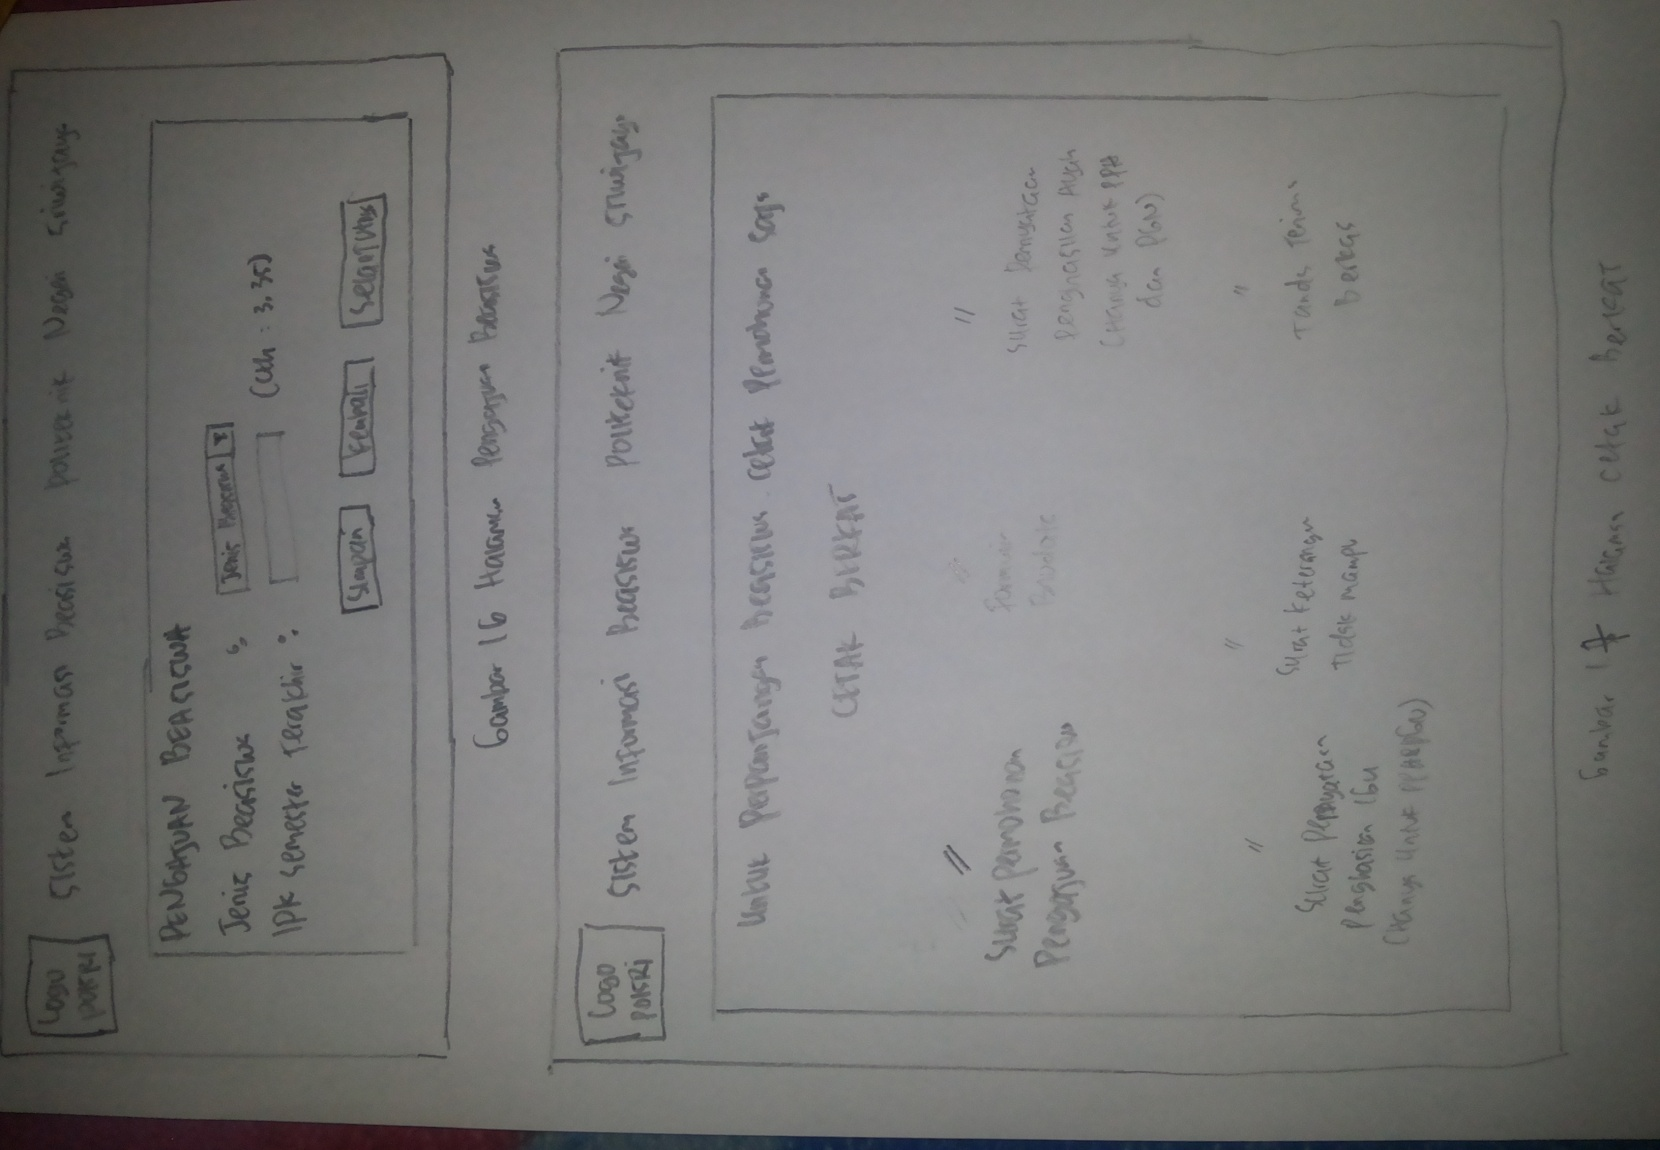 LOGO
POLSRI
Sistem Informasi Beasiswa Politeknik Negeri Sriwijaya
PENGAJUAN BEASISWA
Jenis Beasiswa : Jenis Beasiswa
IPK Semester Terakhir : (cth : 3.35)
Simpan Kembali Selanjutnya
Gambar 16 Halaman Pengajuan Beasiswa
LOGO
POLSRI
Sistem Informasi Beasiswa Politeknik Negeri Sriwijaya
Untuk Perpanjangan Beasiswa cetak Permohonan saja
CETAK BERKAS
" " "
Surat Permohonan
Pengajuan Beasiswa
Formulir
Surat Pernyataan
Penghasilan Ayah
(Hanya untuk PPA
dan PGN)
" " "
Surat Pernyataan
Penghasilan Ibu
(Hanya untuk
Surat Keterangan
Tidak mampu
Tanda Terima
Berkas
Gambar 17 Halaman cetak Berkas